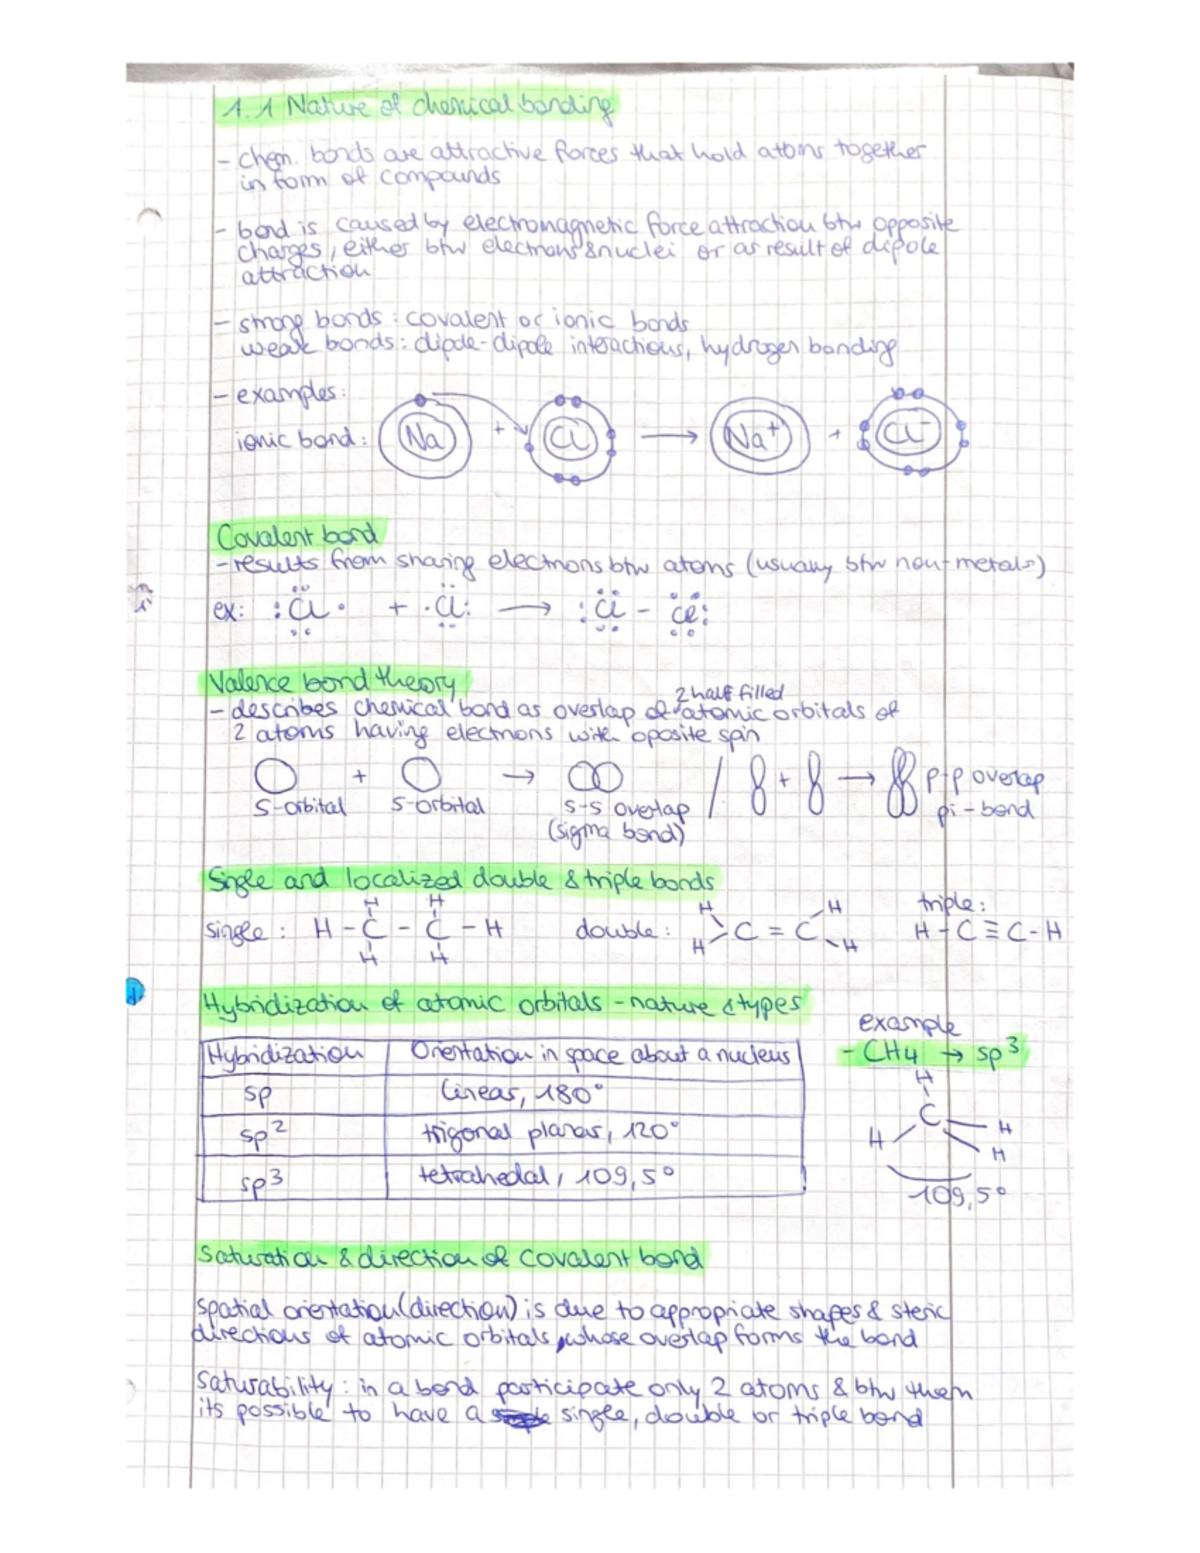 1.1 Nature of chemical bonding
- chem. bonds are attractive forces that hold atoms together
in form of compounds
- bond is caused by electromagnetic force attraction btw opposite
charges, either btw electrons & nuclei or as result of dipole
attraction
- strong bonds: covalent or ionic bonds
weak bonds: dipole-dipole interactions, hydrogen bonding
- examples:
ionic bond: Na + Cl → Na+ + Cl-
Covalent bond
- results from sharing electrons btw atoms (usually btw non-metals)
ex: :Cl· + ·Cl: → :Cl - Cl:
Valence bond theory
2 half filled
- describes chemical bond as overlap of atomic orbitals of
2 atoms having electrons with oposite spin
+ → / + → p-p overlap
s-orbital s-orbital s-s overlap pi-bond
(sigma bond)
Single and localized double & triple bonds
H H H H triple:
single: H - C - C - H double: C = C H - C ≡ C - H
H H H H
Hybridization of atomic orbitals - nature & types
example
Hybridization Orientation in space about a nucleus - CH4 → sp3
sp linear, 180° H
sp2 trigonal planar, 120° C H
H H
sp3 tetrahedal, 109,5° 109,5°
Saturation & direction of covalent bond
spatial orientation (direction) is due to appropriate shapes & steric
directions of atomic orbitals, whose overlap forms the bond
Saturability: in a bond participate only 2 atoms & btw them
its possible to have a single, double or triple bond